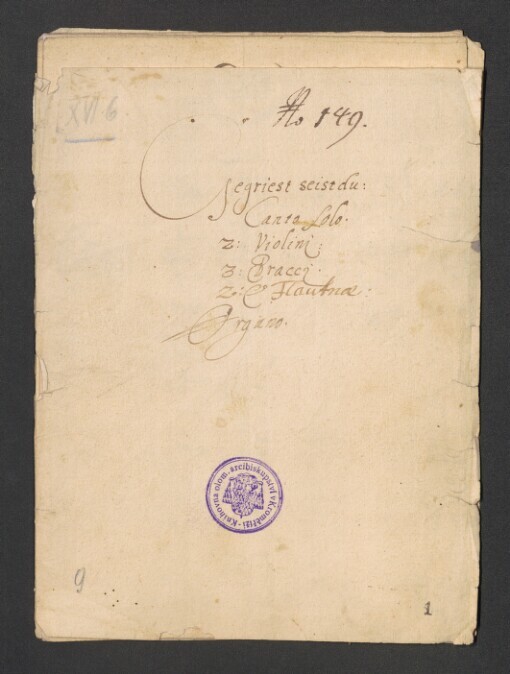 XVI 6
No 149.
Gegriest seistdu:
Canto Solo.
2: Violini:
3: Bracci.
2: Flautnæ:
Organo.
Knihovna olom. arcibiskupství v Kroměříži
9
1